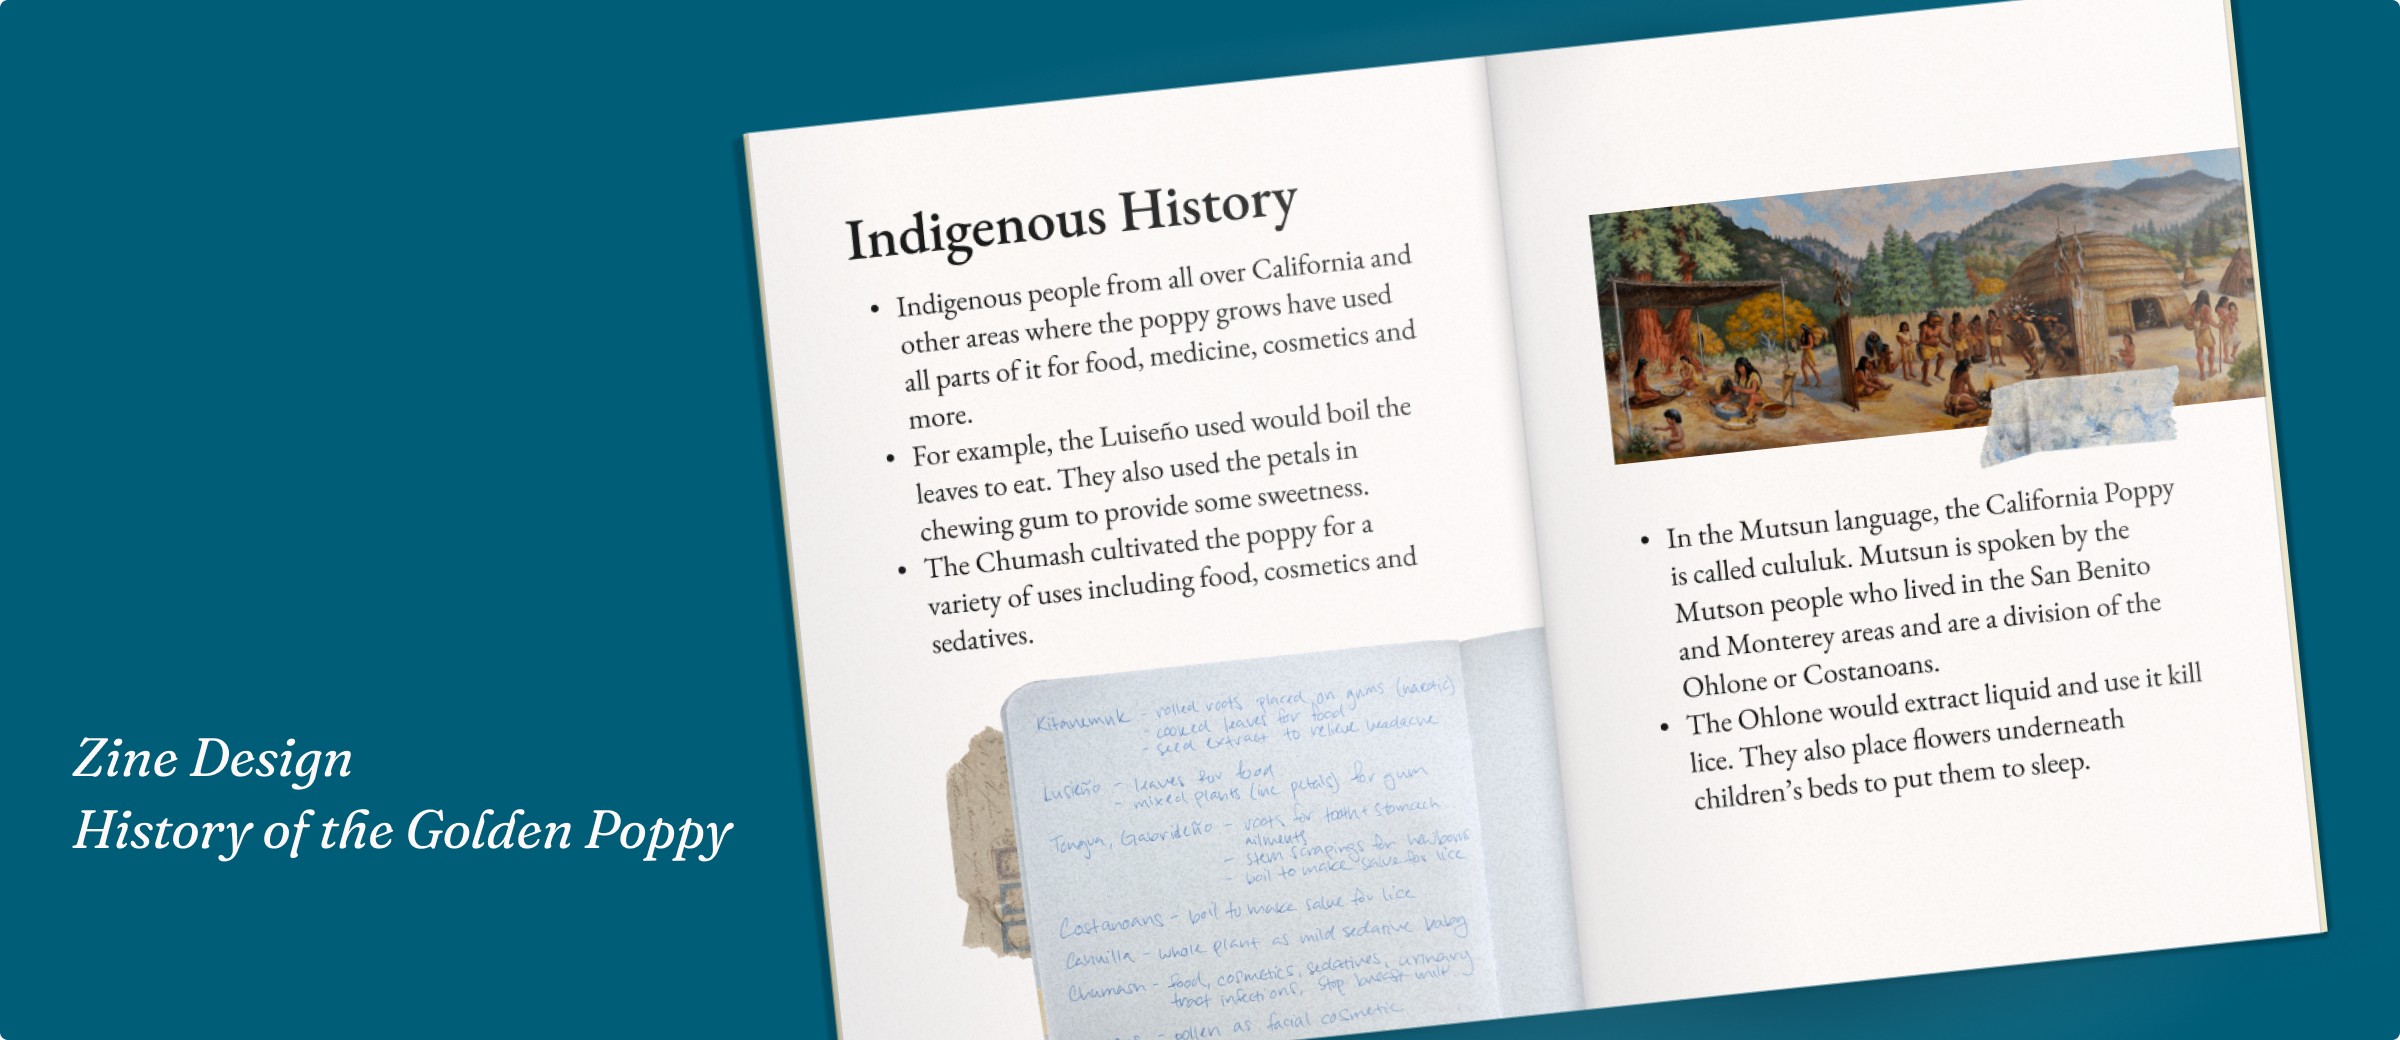 Zine Design
History of the Golden Poppy
Indigenous History
• Indigenous people from all over California and
other areas where the poppy grows have used
all parts of it for food, medicine, cosmetics and
more.
• For example, the Luiseño used would boil the
leaves to eat. They also used the petals in
chewing gum to provide some sweetness.
• The Chumash cultivated the poppy for a
variety of uses including food, cosmetics and
sedatives.
Kitanemuk - rolled roots placed on gums (narotic)
- cooked leaves for food
- seed extract to relieve headache
Lusieño - leaves for food
- mixed plants (inc petals) for gum
Tongva, Gabrideño - roots for tooth + stomach
ailments
- stem scrapings for newborns
- boil to make salve for lice
Costanoans - boil to make salve for lice
Cahuilla - whole plant as mild sedative baby
Chumash - food, cosmetics, sedatives, urinary
tract infections, stop breast milk
- pollen as facial cosmetic
• In the Mutsun language, the California Poppy
is called cululuk. Mutsun is spoken by the
Mutson people who lived in the San Benito
and Monterey areas and are a division of the
Ohlone or Costanoans.
• The Ohlone would extract liquid and use it kill
lice. They also place flowers underneath
children's beds to put them to sleep.